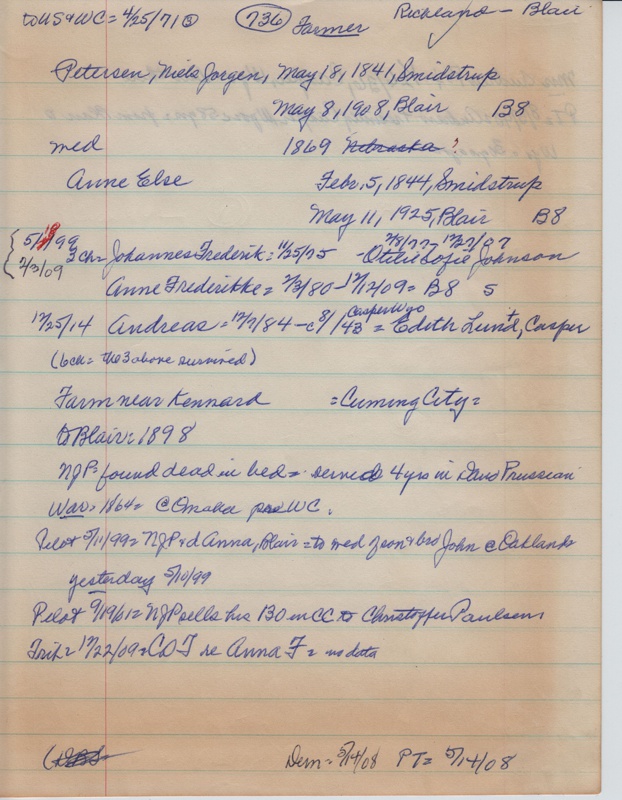 to US & WC = 4/25/71 ③ (736) Farmer Richland - Blair
Petersen, Niels Jorgen, May 18, 1841, Smidstrup
May 8, 1908, Blair B8
med 1869 Nebraska ?
Anne Else Febr. 5, 1844, Smidstrup
May 11, 1925, Blair B8
2/8/77 - 12/27/97
3 ch = Johannes Frederik = 11/25/75 - Johnson
2/3/09 Anne Frederikke = 2/3/80 - 12/12/09 = B8 5
Casper Wyo
12/25/14 Andreas = 12/7/84 - c 8/1/43 = Edith Lund+, Casper
(6 ch = the 3 above survived)
Farm near Kennard = Cuming City =
to Blair = 1898
NJP = found dead in bed = served 4 yrs in Dano Prussian
War = 1864 = c Omaha pre WC.
Pilot 5/11/99 = NJP & d Anna, Blair = to wed of son & bro John c Oakland
yesterday 5/10/99
Pilot 9/19/01 = NJP sells his 130 in CC to Christoffer Paulsen
12/22/09 = CD F re Anna F = no data
Dem = 5/14/08 PT = 5/14/08